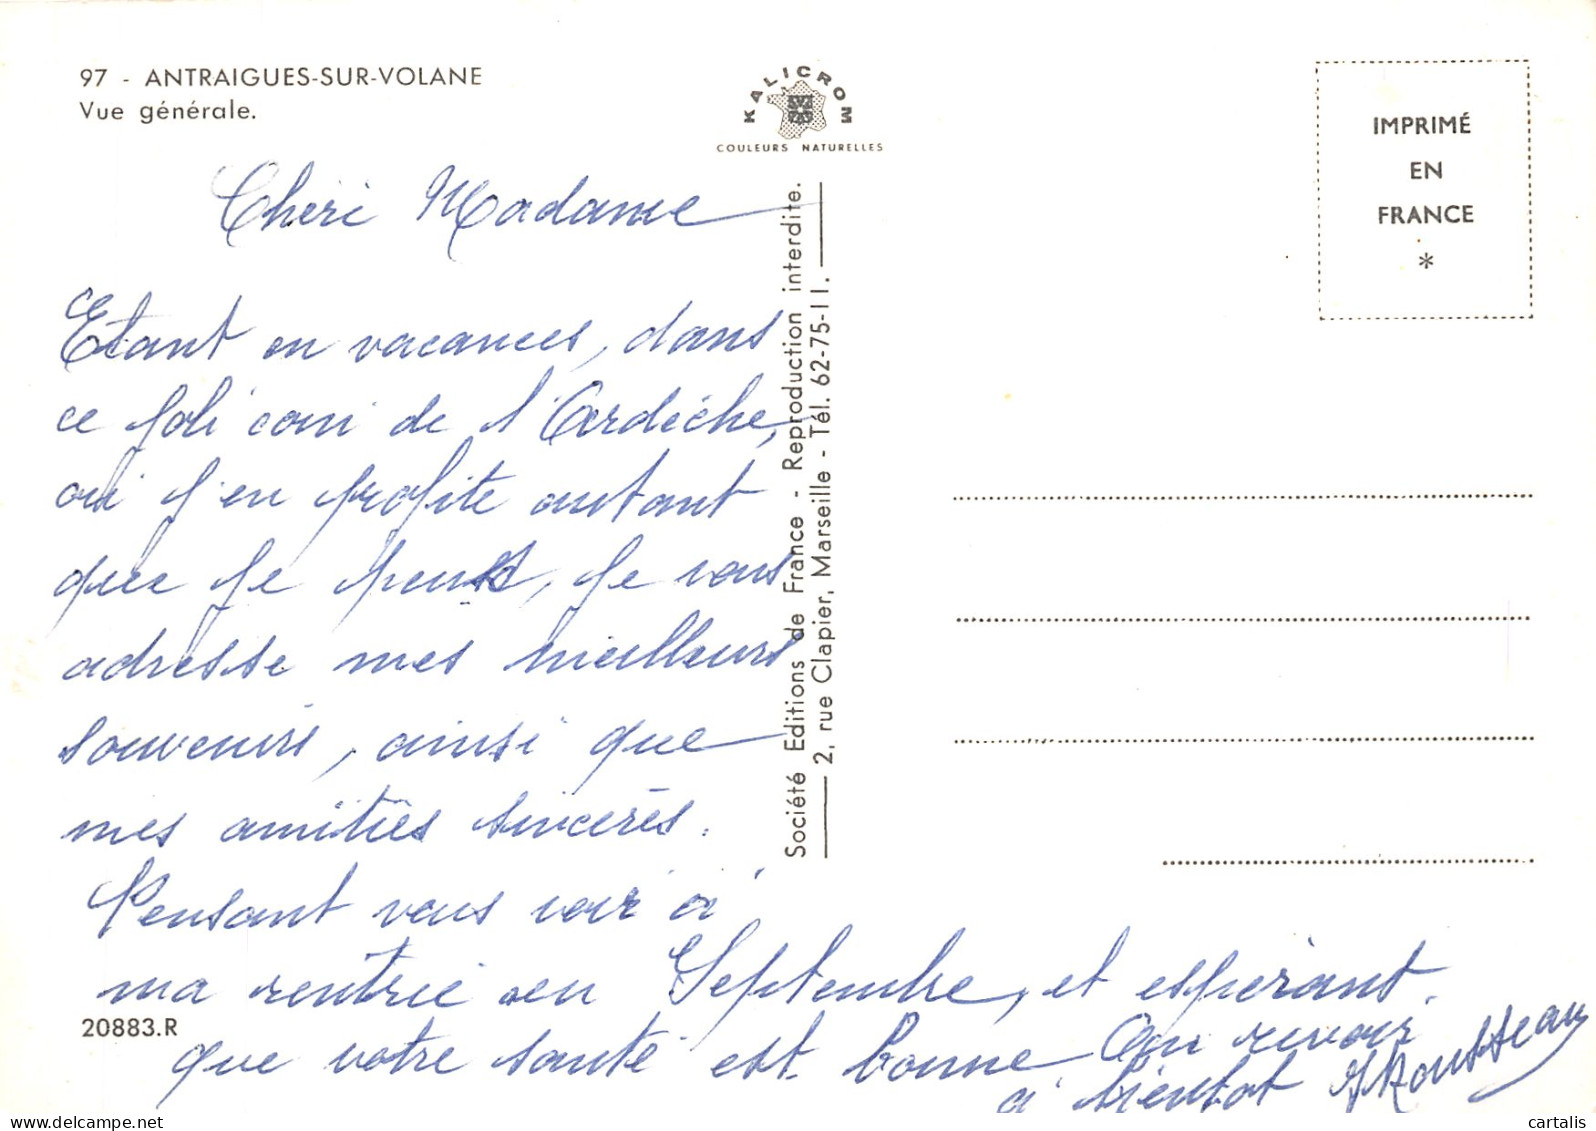 97 - ANTRAIGUES-SUR-VOLANE
Vue générale.
KALICROM
COULEURS NATURELLES
IMPRIMÉ
EN
FRANCE
*
Chéri Madame
Etant en vacances, dans
ce joli coin de l'Ardèche,
où j'en profite autant
que je peux, je vous
adresse mes meilleurs
souvenirs, ainsi que
mes amitiés sincerès.
Pensant vous voir à
ma rentrie en Septembre, et espèrant
que votre santé est bonne Au revoir
à bientot Rousseau
Société Editions de France - Reproduction interdite.
2, rue Clapier, Marseille - Tél. 62-75-11.
20883.R
cartalis
delcampe.net